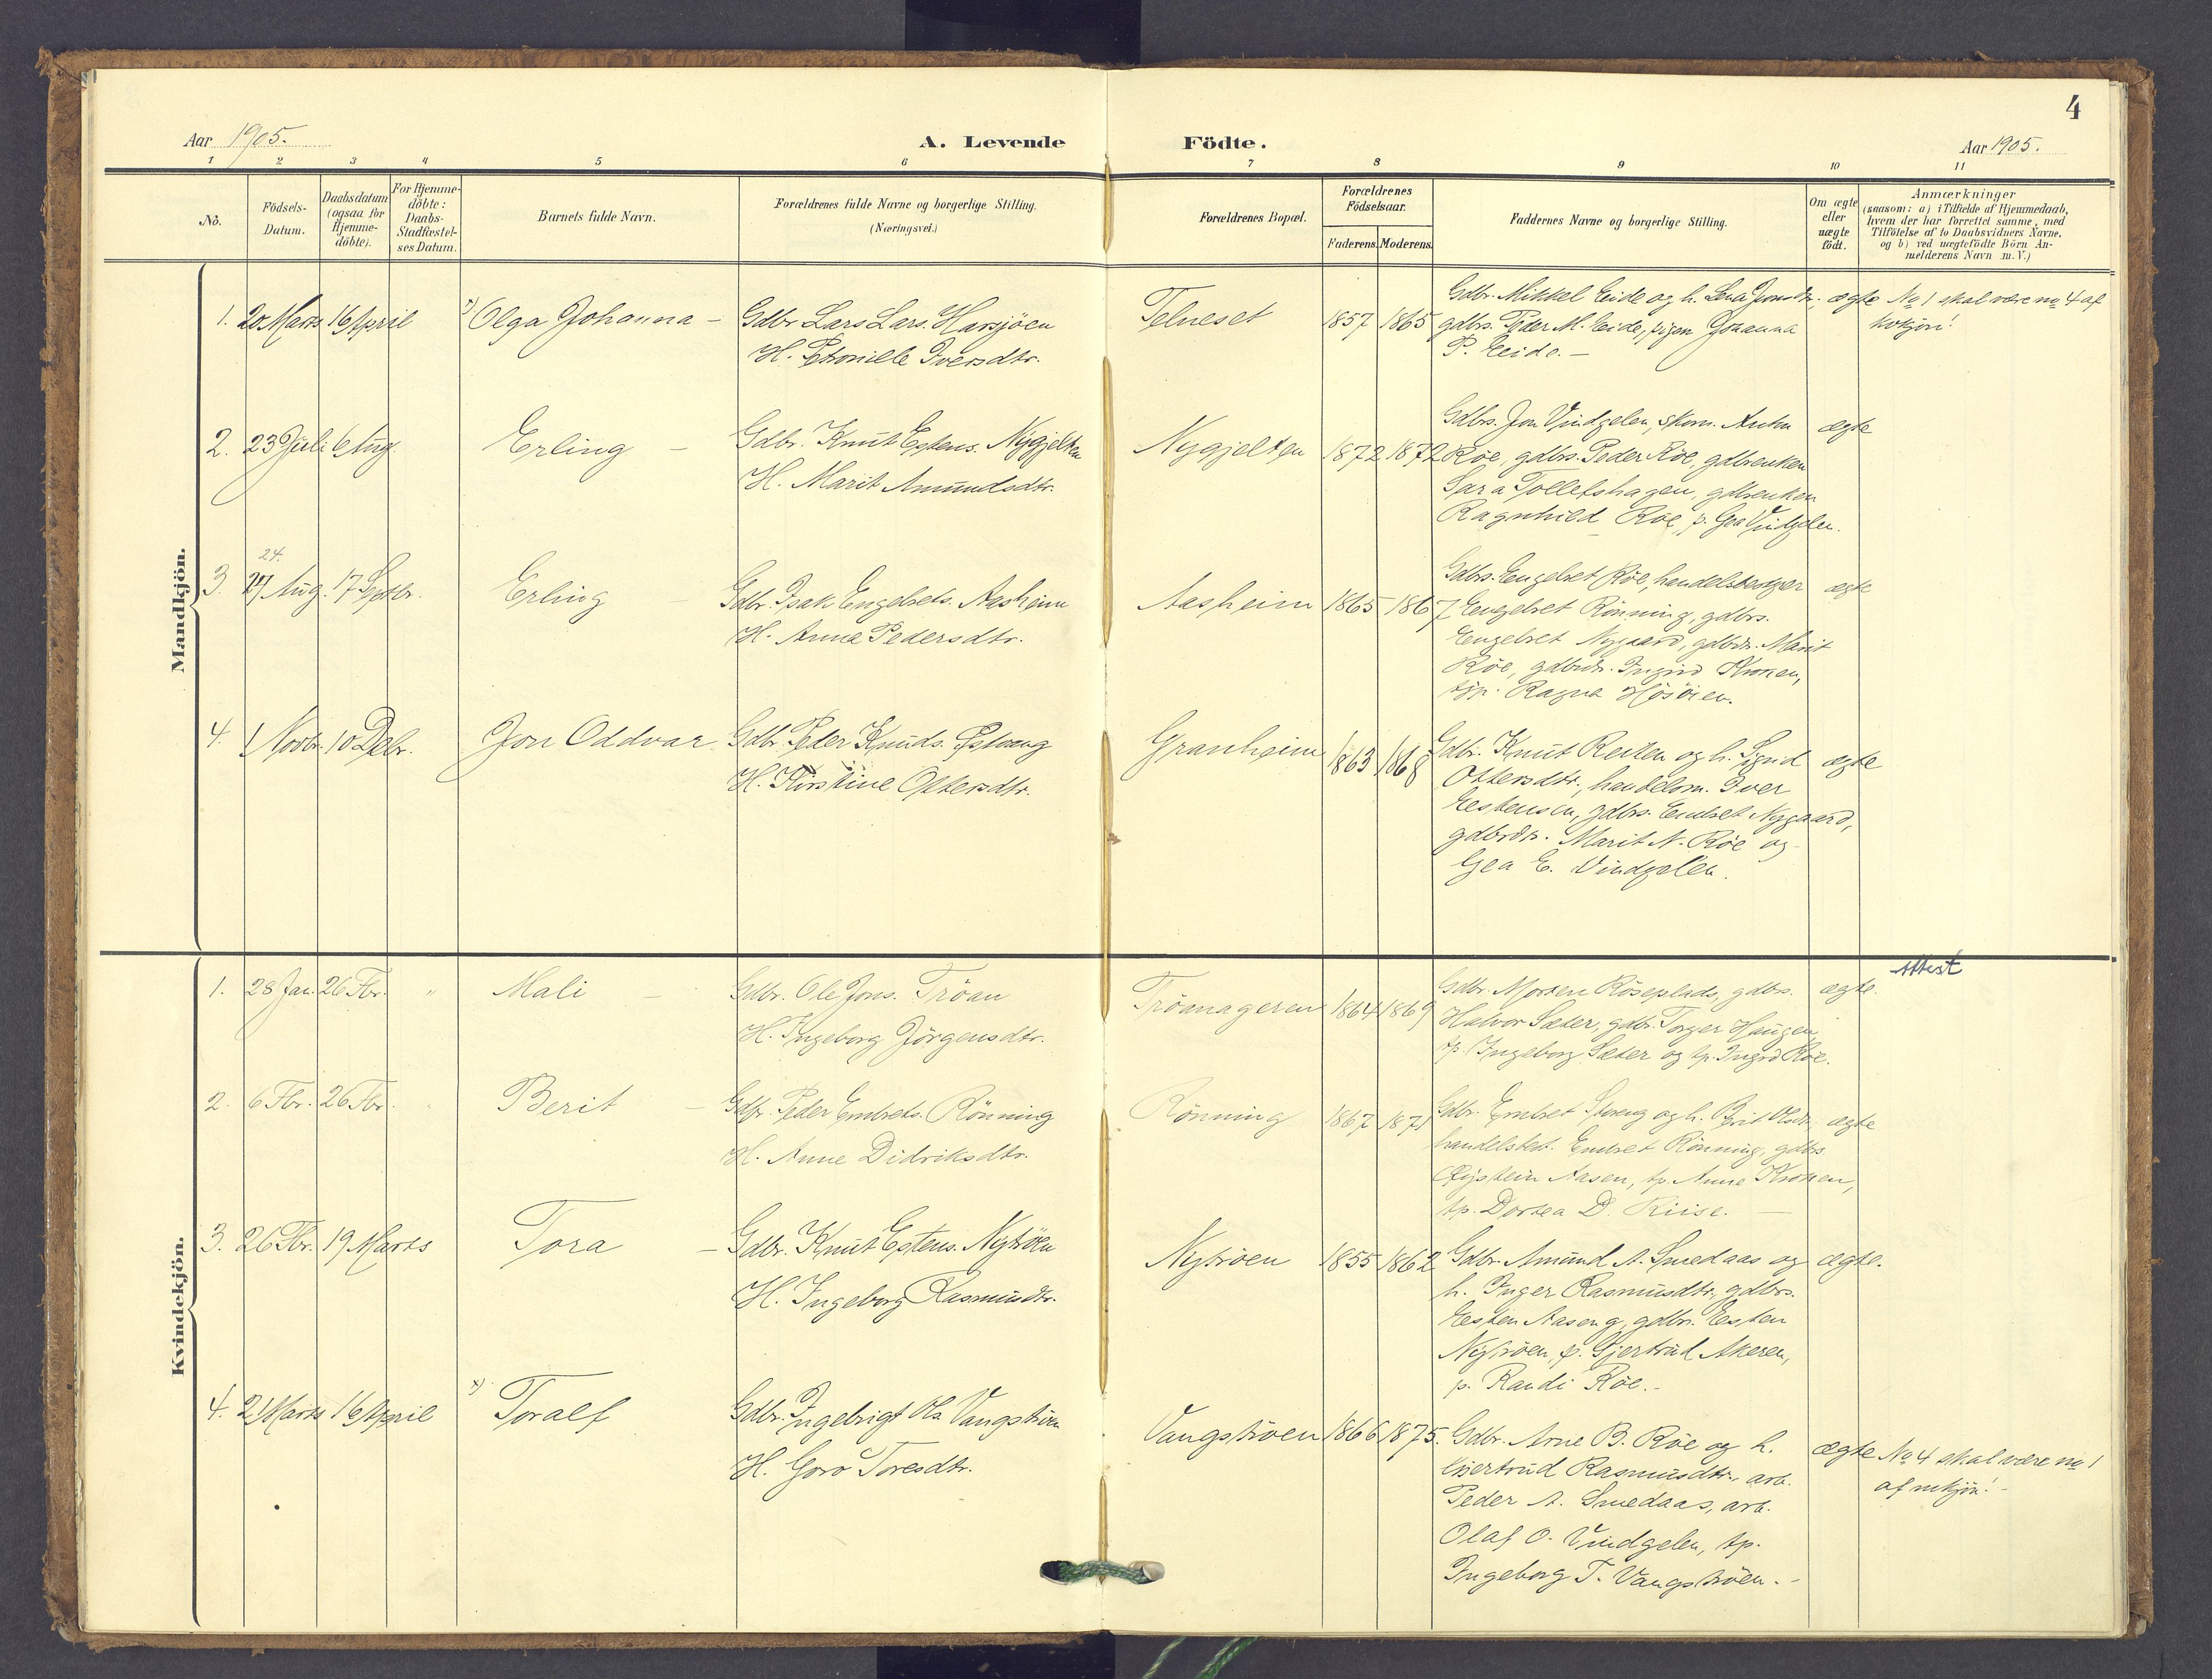 4
Aar 1905.
A. Levende Födte.
Aar 1905.
1 2 3 4 5 6 7 8 9 10 11
No.
Födsels-Datum.
Daabsdatum (ogsaa for Hjemme-döbte).
For Hjemme-döbte: Daabs-Stadfæstel-ses Datum.
Barnets fulde Navn.
Forældrenes fulde Navne og borgerlige Stilling. (Næringsvei.)
Forældrenes Bopæl.
Forældrenes Födselsaar.
Faderens. Moderens.
Faddernes Navne og borgerlige Stilling.
Om ægte eller uægte födt.
Anmærkninger
(saasom: a) i Tilfælde af Hjemmedaab,
hvem der har forrettet samme, med
Tilföielse af to Daabsvidners Navne,
og b) ved uægtefödte Börn An-
melderens Navn m. V.)
Mandkjön.
1. 20 Marts 16 April x) Olga Johanna –
Gdbr. Lars Lars. Harsjöen
H. Petonille Iversdtr.
Telneset 1857 1865
Gdbr. Mikkel Eide og h. Lena Jonsdtr.,
gdbrs. Peder M. Eide, pigen Johanna
P. Eide. –
ægte
No 1 skal være no 4 af
kvkjön!
2. 23 Juli 6 Aug. Erling –
Gdbr. Knut Estens. Nygjelten
H. Marit Amundsdtr.
Nygjelten 1872 1872
Gdbrs. Jon Vindgelen, skom. Anton
Röe, gdbrs. Peder Röe, gdbrenken
Sara Tollefshagen, gdbrenken
Ragnhild Röe, p. Gea Vindgelen.
ægte
24.
3. 27 Aug. 17 Septbr. Erling –
Gdbr. Isak Engebrets. Aasheim
H. Anna Pedersdtr.
Aasheim 1865 1867
Gdbrs. Engebret Röe, handelsbetjer
Engebret Rönning, gdbrs.
Engebret Nygaard, gdbrdr. Marit
Röe, gdbrdr. Ingrid Kroken,
tjp. Ragna Hösöien.
ægte
4. 1 Novbr. 10 Decbr. Jon Oddvar.
Gdbr. Peder Knuds. Östvang
H. Kirstine Ottersdtr.
Granheim 1863 1868
Gdbr. Knut Reiten og h. Sigrid
Ottersdtr., handelsm. Iver
Estensen, gdbrs. Embret Nygaard,
gdbrdr. Marit N. Röe og
Gea E. Vindgelen.
ægte
Kvindekjön.
1. 28 Jan. 26 Fbr. " Mali –
Gdbr. Ole Jons. Tröan
H. Ingeborg Jörgensdtr.
Tröanageren 1864 1869
Gdbr. Morten Röseplads, gdbrs.
Halvor Sæter, gdbr. Torger Haugen,
tp. Ingeborg Sæter og tp. Ingrid Röe.
ægte.
Attest
2. 6 Fbr. 26 Fbr. " Berit –
Gdbr. Peder Embrets. Rönning
H. Anne Didriksdtr.
Rönning 1867 1871
Gdbr. Embret Storeng og h. Brit Olsdtr.,
handelsbet. Embret Rönning, gdbrs.
Öistein Aasen, tp. Anne Kroken,
tp. Dortea D. Riise. –
ægte
3. 26 Fbr. 19 Marts Tora –
Gdbr. Knut Estens. Nytröen
H. Ingeborg Rasmusdtr.
Nytröen 1855 1862
Gdbr. Amund A. Smedaas og
h. Inger Rasmusdtr., gdbrs.
Esten Aaseng, gdbrs. Esten
Nytröen, p. Gjertrud Akeren,
p. Randi Röe. –
ægte.
4. 21 Marts 16 April x) Toralf
Gdbr. Ingebrigt Ols. Vangströen
H. Goro Toresdtr.
Vangströen 1866 1875.
Gdbr. Arne B. Röe og h.
Gjertrud Rasmusdtr., arb.
Peder A. Smedaas, arb.
Olaf O. Vindgelen, tp.
Ingeborg T. Vangströen. –
ægte
No 4 skal være no 1
af mkjön! –